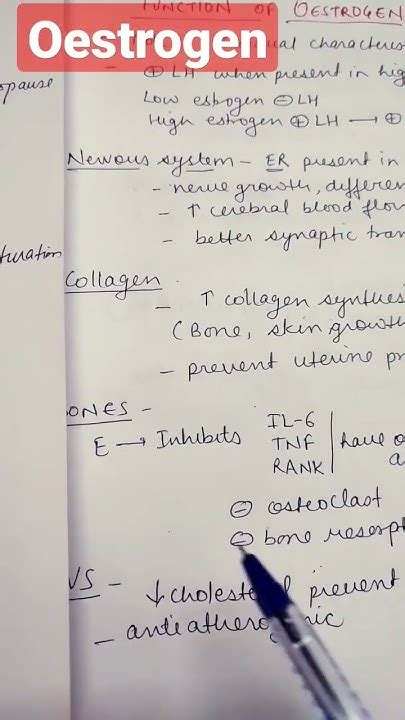 FUNCTION OF OESTROGEN
Oestrogen
characteris
⊕ LH when present in hig
Low estrogen ⊖ LH
High estrogen ⊕ LH → ⊕
opause
Nervous system - ER present in
- nerve growth, differen
- ↑ cerebral blood flow
- better synaptic tran
turation
Collagen
- ↑ collagen synthes
(Bone, skin growth
- prevent uterine pr
ONES -
E → Inhibits IL-6
TNF
RANK
have
⊖ osteoclast
⊖ bone resorpt
VS - ↓ cholesterol prevent
- antiatherogenic